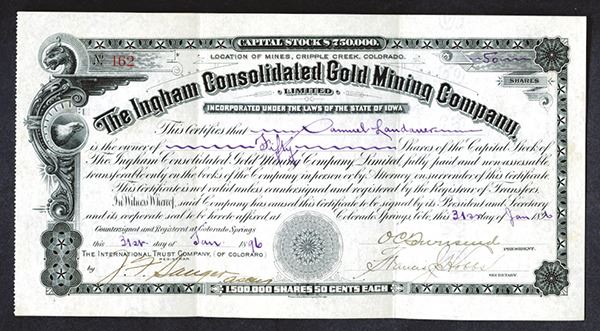 CAPITAL STOCK $750,000.
No 162
LOCATION OF MINES, CRIPPLE CREEK, COLORADO.
50
SHARES
The Ingham Consolidated Gold Mining Company,
LIMITED
INCORPORATED UNDER THE LAWS OF THE STATE OF IOWA
This Certifies that Samuel Landauer
is the owner of Fifty Shares of the Capital Stock of
The Ingham Consolidated Gold Mining Company Limited fully paid and non-assessable
transferable only on the books of the Company in person or by Attorney on surrender of this Certificate.
This Certificate is not valid unless countersigned and registered by the Registrar of Transfers.
In Witness Whereof, said Company has caused this Certificate to be signed by its President and Secretary
and its corporate seal to be hereto affixed at Colorado Springs, Colo, this 31st day of Jan 1896
Countersigned and Registered at Colorado Springs
this 31st day of Jan 1896
THE INTERNATIONAL TRUST COMPANY, (OF COLORADO)
REGISTRAR
by
PRESIDENT.
SECRETARY
1,500,000 SHARES 50 CENTS EACH